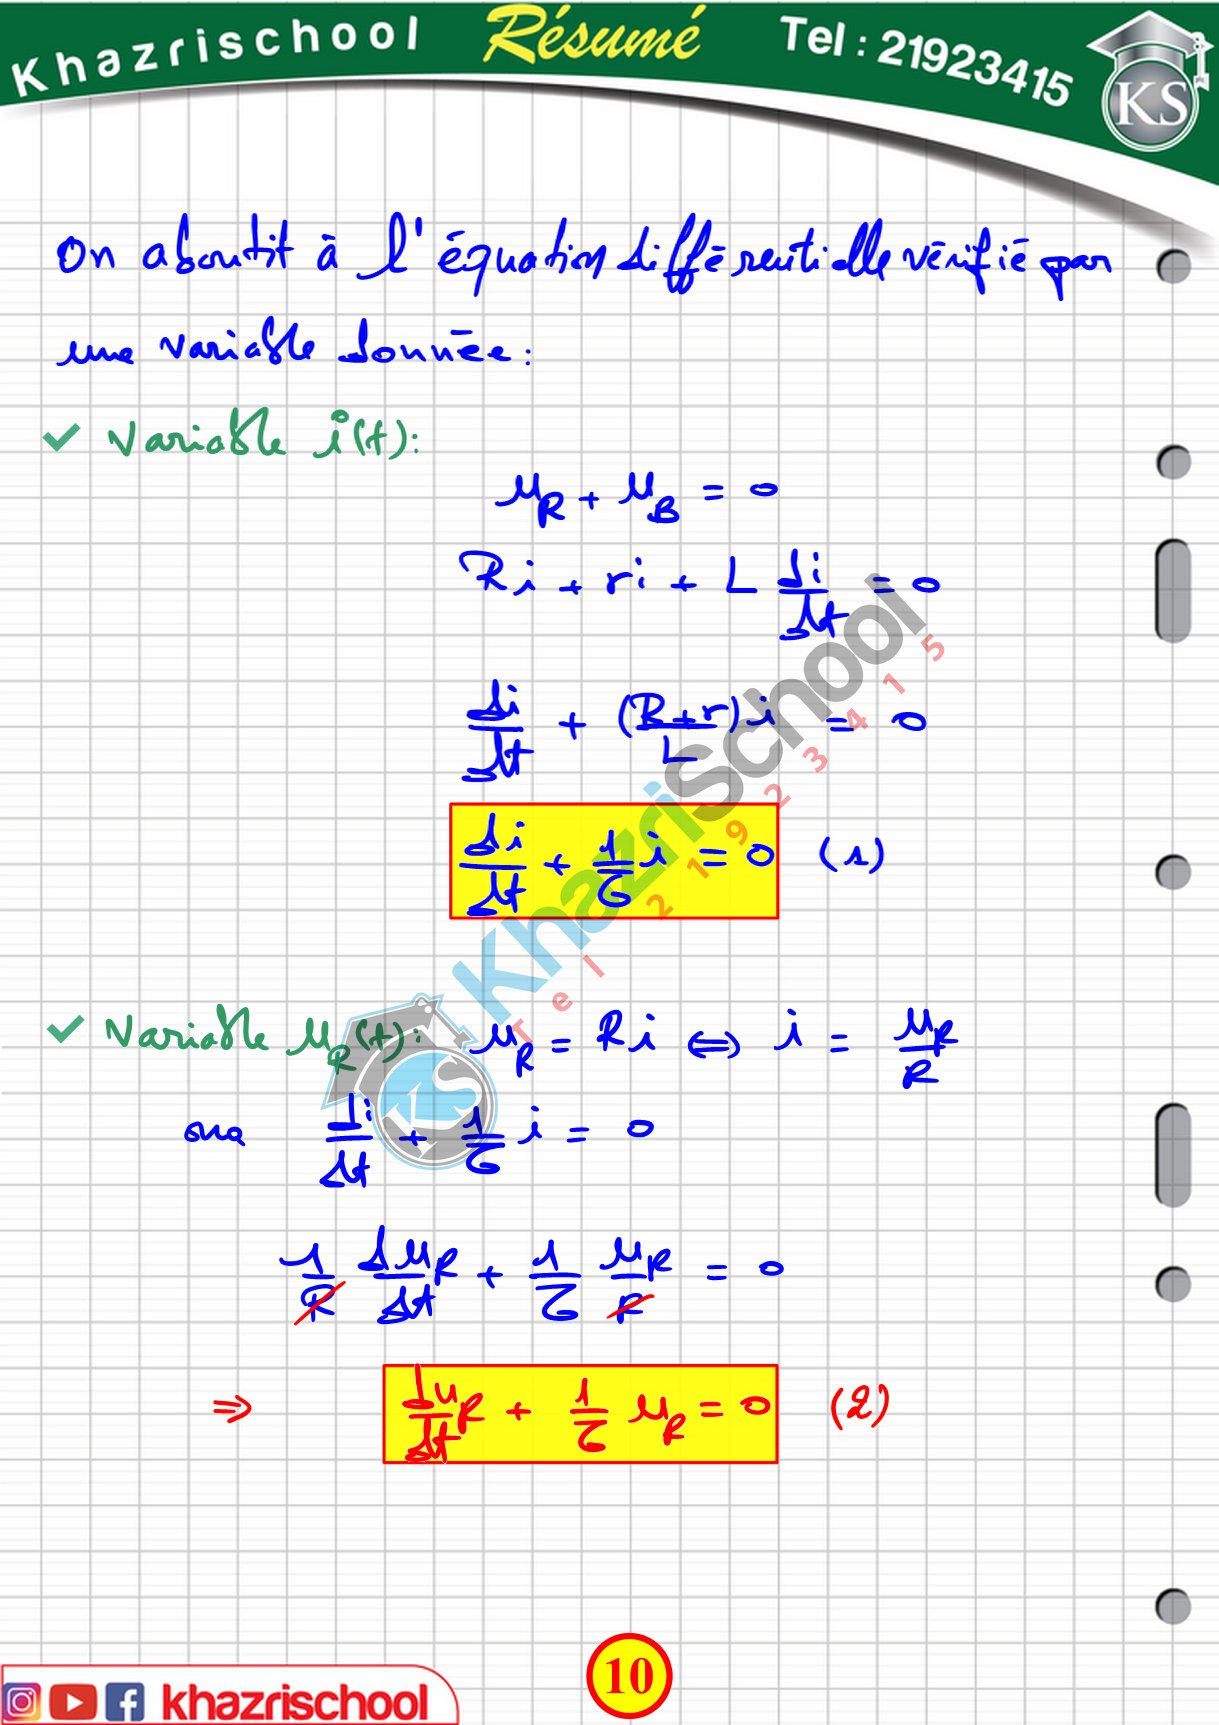 Khazrischool Résumé Tel : 21923415
KS
On aboutit à l'équation différentielle vérifié par
une variable donnée :
✓ Variable i(t) :
u_R + u_B = 0
Ri + ri + L di/dt = 0
di/dt + (R+r)/L i = 0
di/dt + 1/τ i = 0 (1)
✓ Variable u_R(t) : u_R = Ri ⇔ i = u_R/R
ona di/dt + 1/τ i = 0
1/R du_R/dt + 1/τ u_R/R = 0
⇒ du_R/dt + 1/τ u_R = 0 (2)
KhazriSchool
Tel 21923415
KS
10
khazrischool